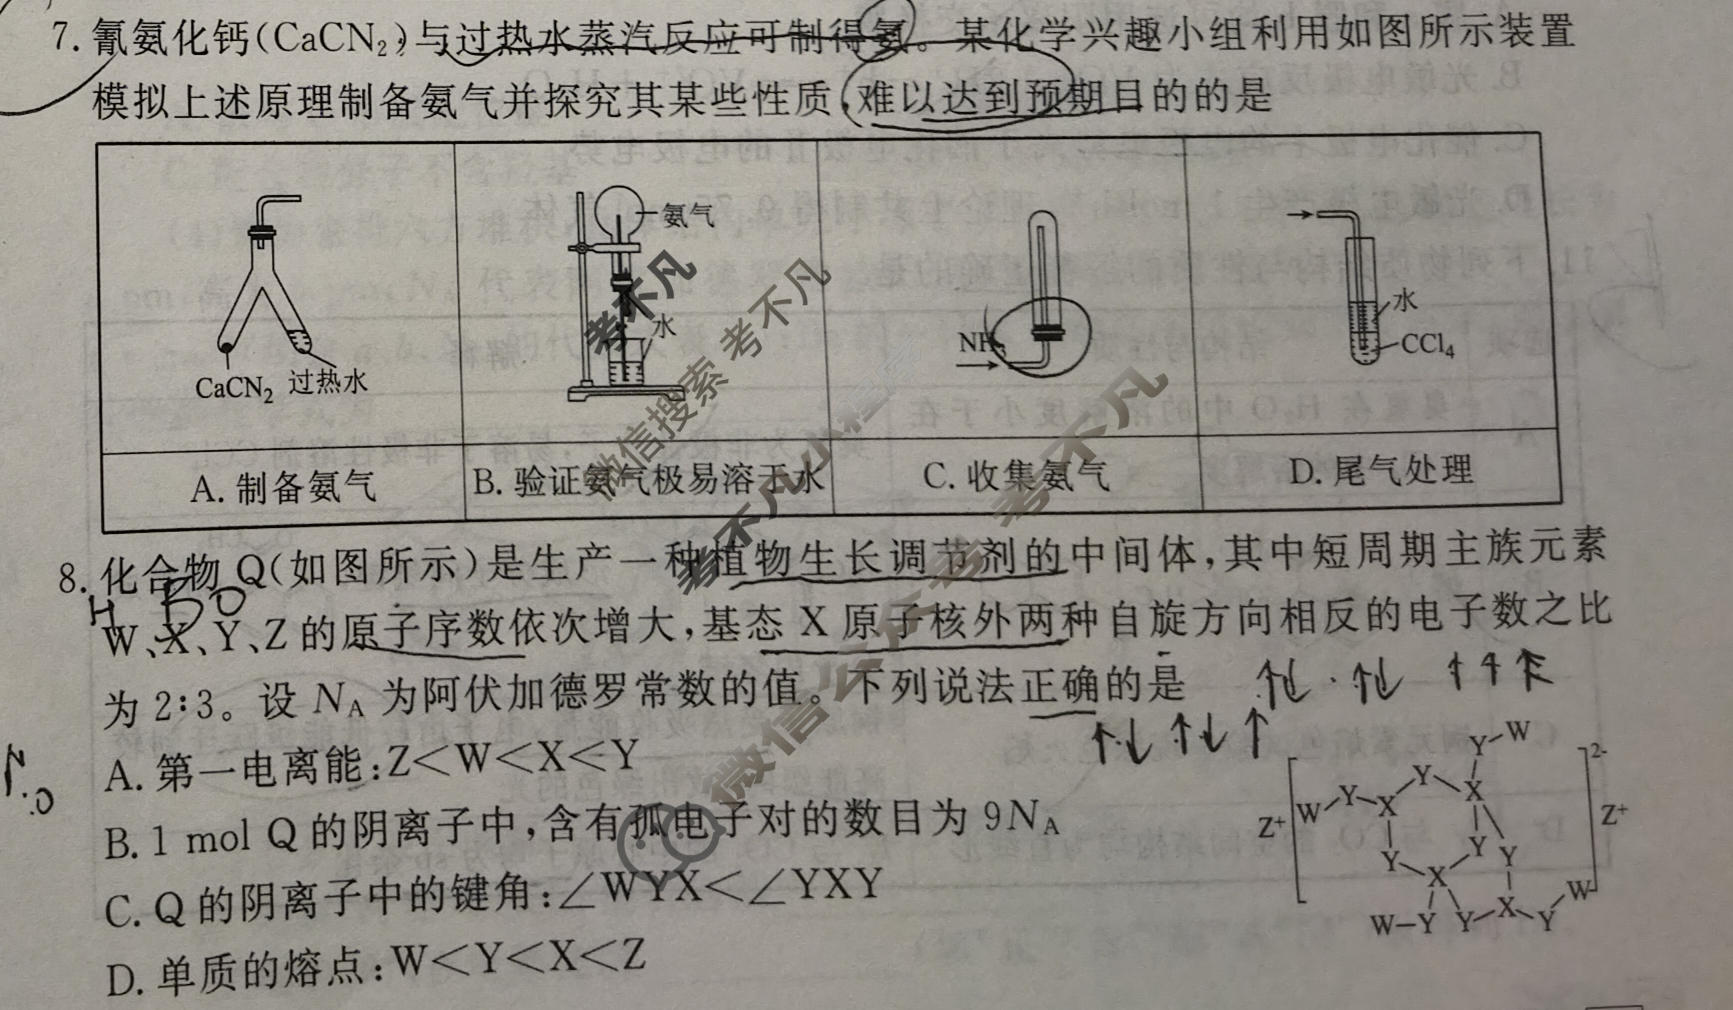 7. 氰氨化钙(CaCN₂)与过热水蒸汽反应可制得氨。某化学兴趣小组利用如图所示装置
模拟上述原理制备氨气并探究其某些性质,难以达到预期目的的是
CaCN₂ 过热水
氨气
水
NH₃
水
CCl₄
A. 制备氨气
B. 验证氨气极易溶于水
C. 收集氨气
D. 尾气处理
8. 化合物 Q(如图所示)是生产一种植物生长调节剂的中间体,其中短周期主族元素
H B O
W、X、Y、Z 的原子序数依次增大,基态 X 原子核外两种自旋方向相反的电子数之比
为 2∶3。设 Nᴀ 为阿伏加德罗常数的值。下列说法正确的是
↑↓ · ↑↓ ↑ ↑ ↑
↑↓ ↑↓ ↑
A. 第一电离能:Z<W<X<Y
B. 1 mol Q 的阴离子中,含有孤电子对的数目为 9Nᴀ
C. Q 的阴离子中的键角:∠WYX<∠YXY
D. 单质的熔点:W<Y<X<Z
Y-W
2-
Y X
Z⁺ W Y X Z⁺
Y Y Y
X W
W-Y Y X Y
考不凡
微信搜索 考不凡
考不凡小程序
微信公众 考不凡